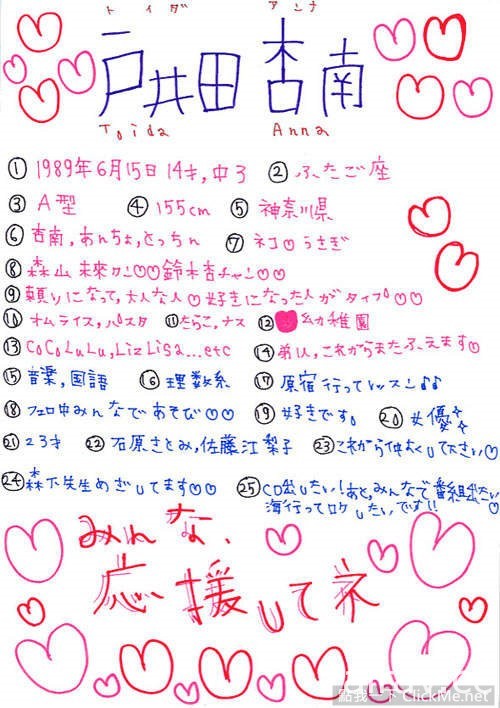 トイダ アンナ
戸井田 杏南
Toida Anna
① 1989年6月15日 14才,中3 ② ふたご座
③ A型 ④ 155cm ⑤ 神奈川県
⑥ 杏南,あんちょ,とっちん ⑦ ネコ♡うさぎ
⑧ 森山 未來クン♡♡鈴木杏チャン♡♡
⑨ 頼りになって,大人な人♡好きになった人がタイプ♡♡
⑩ オムライス,パスタ ⑪ たらこ,ナス ⑫ ♥幼稚園
⑬ CoCoLuLu,LizLiSa...etc ⑭ 弟1人,これからまたふえます♡
⑮ 音楽,国語 ⑯ 理数系 ⑰ 原宿行ってレッスン♪♪
⑱ フェロ中みんなであそび♡♡ ⑲ 好きです。 ⑳ 女優☆
㉑ 23才 ㉒ 石原さとみ,佐藤江梨子 ㉓ これから仲よくして下さい♡
㉔ 森下先生めざしてます♡♡ ㉕ CD出したい!あと,みんなで番組出たい♡
海行ってロケしたいです!!
みんな、
応援してネ
點我一下 ClickMe.net